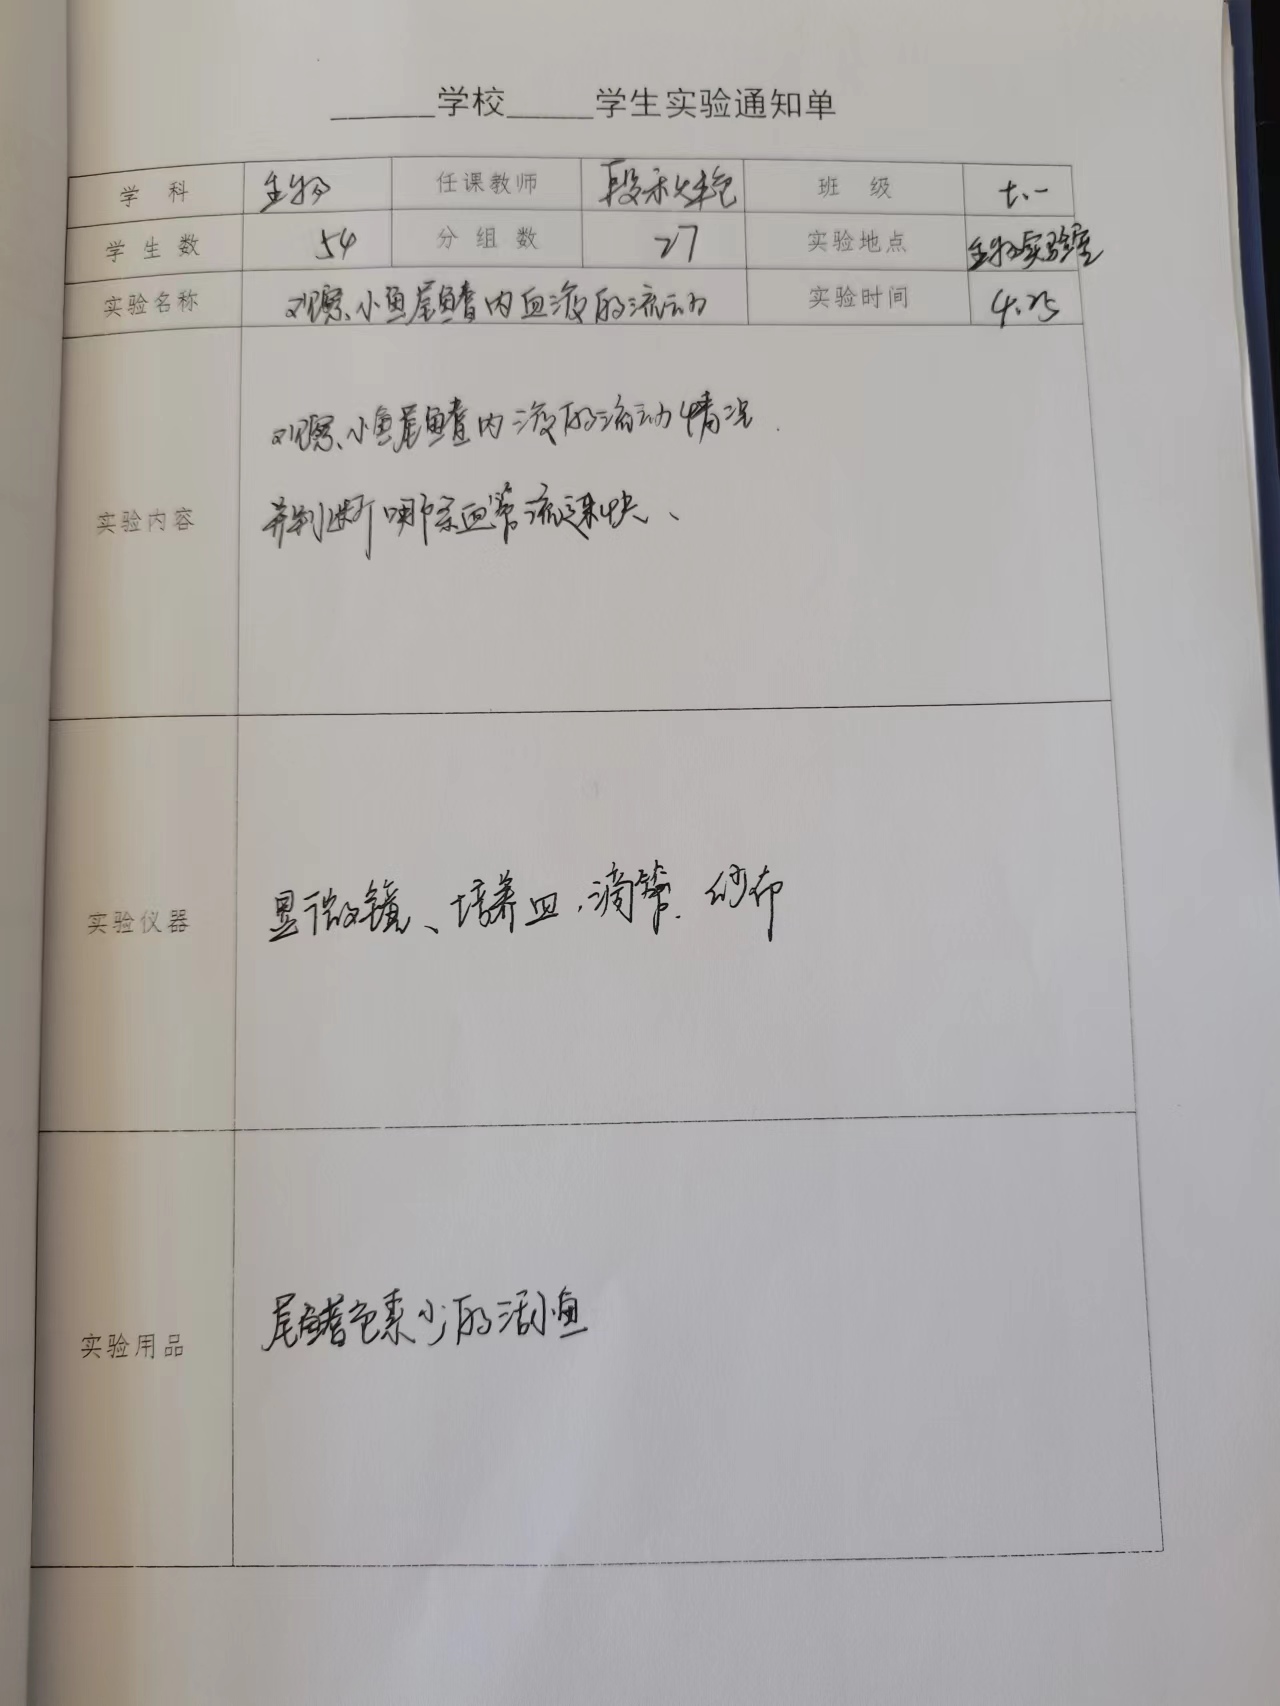 ______学校_____学生实验通知单
学 科 生物 任课教师 段 班 级 七.一
学 生 数 54 分 组 数 27 实验地点 生物实验室
实验名称 观察小鱼尾鳍内血液的流动 实验时间 4.25
观察小鱼尾鳍内液的流动情况.
实验内容 并判断哪条血管流速快、
实验仪器 显微镜、培养皿,滴管.纱布
实验用品 尾鳍色素少的活小鱼